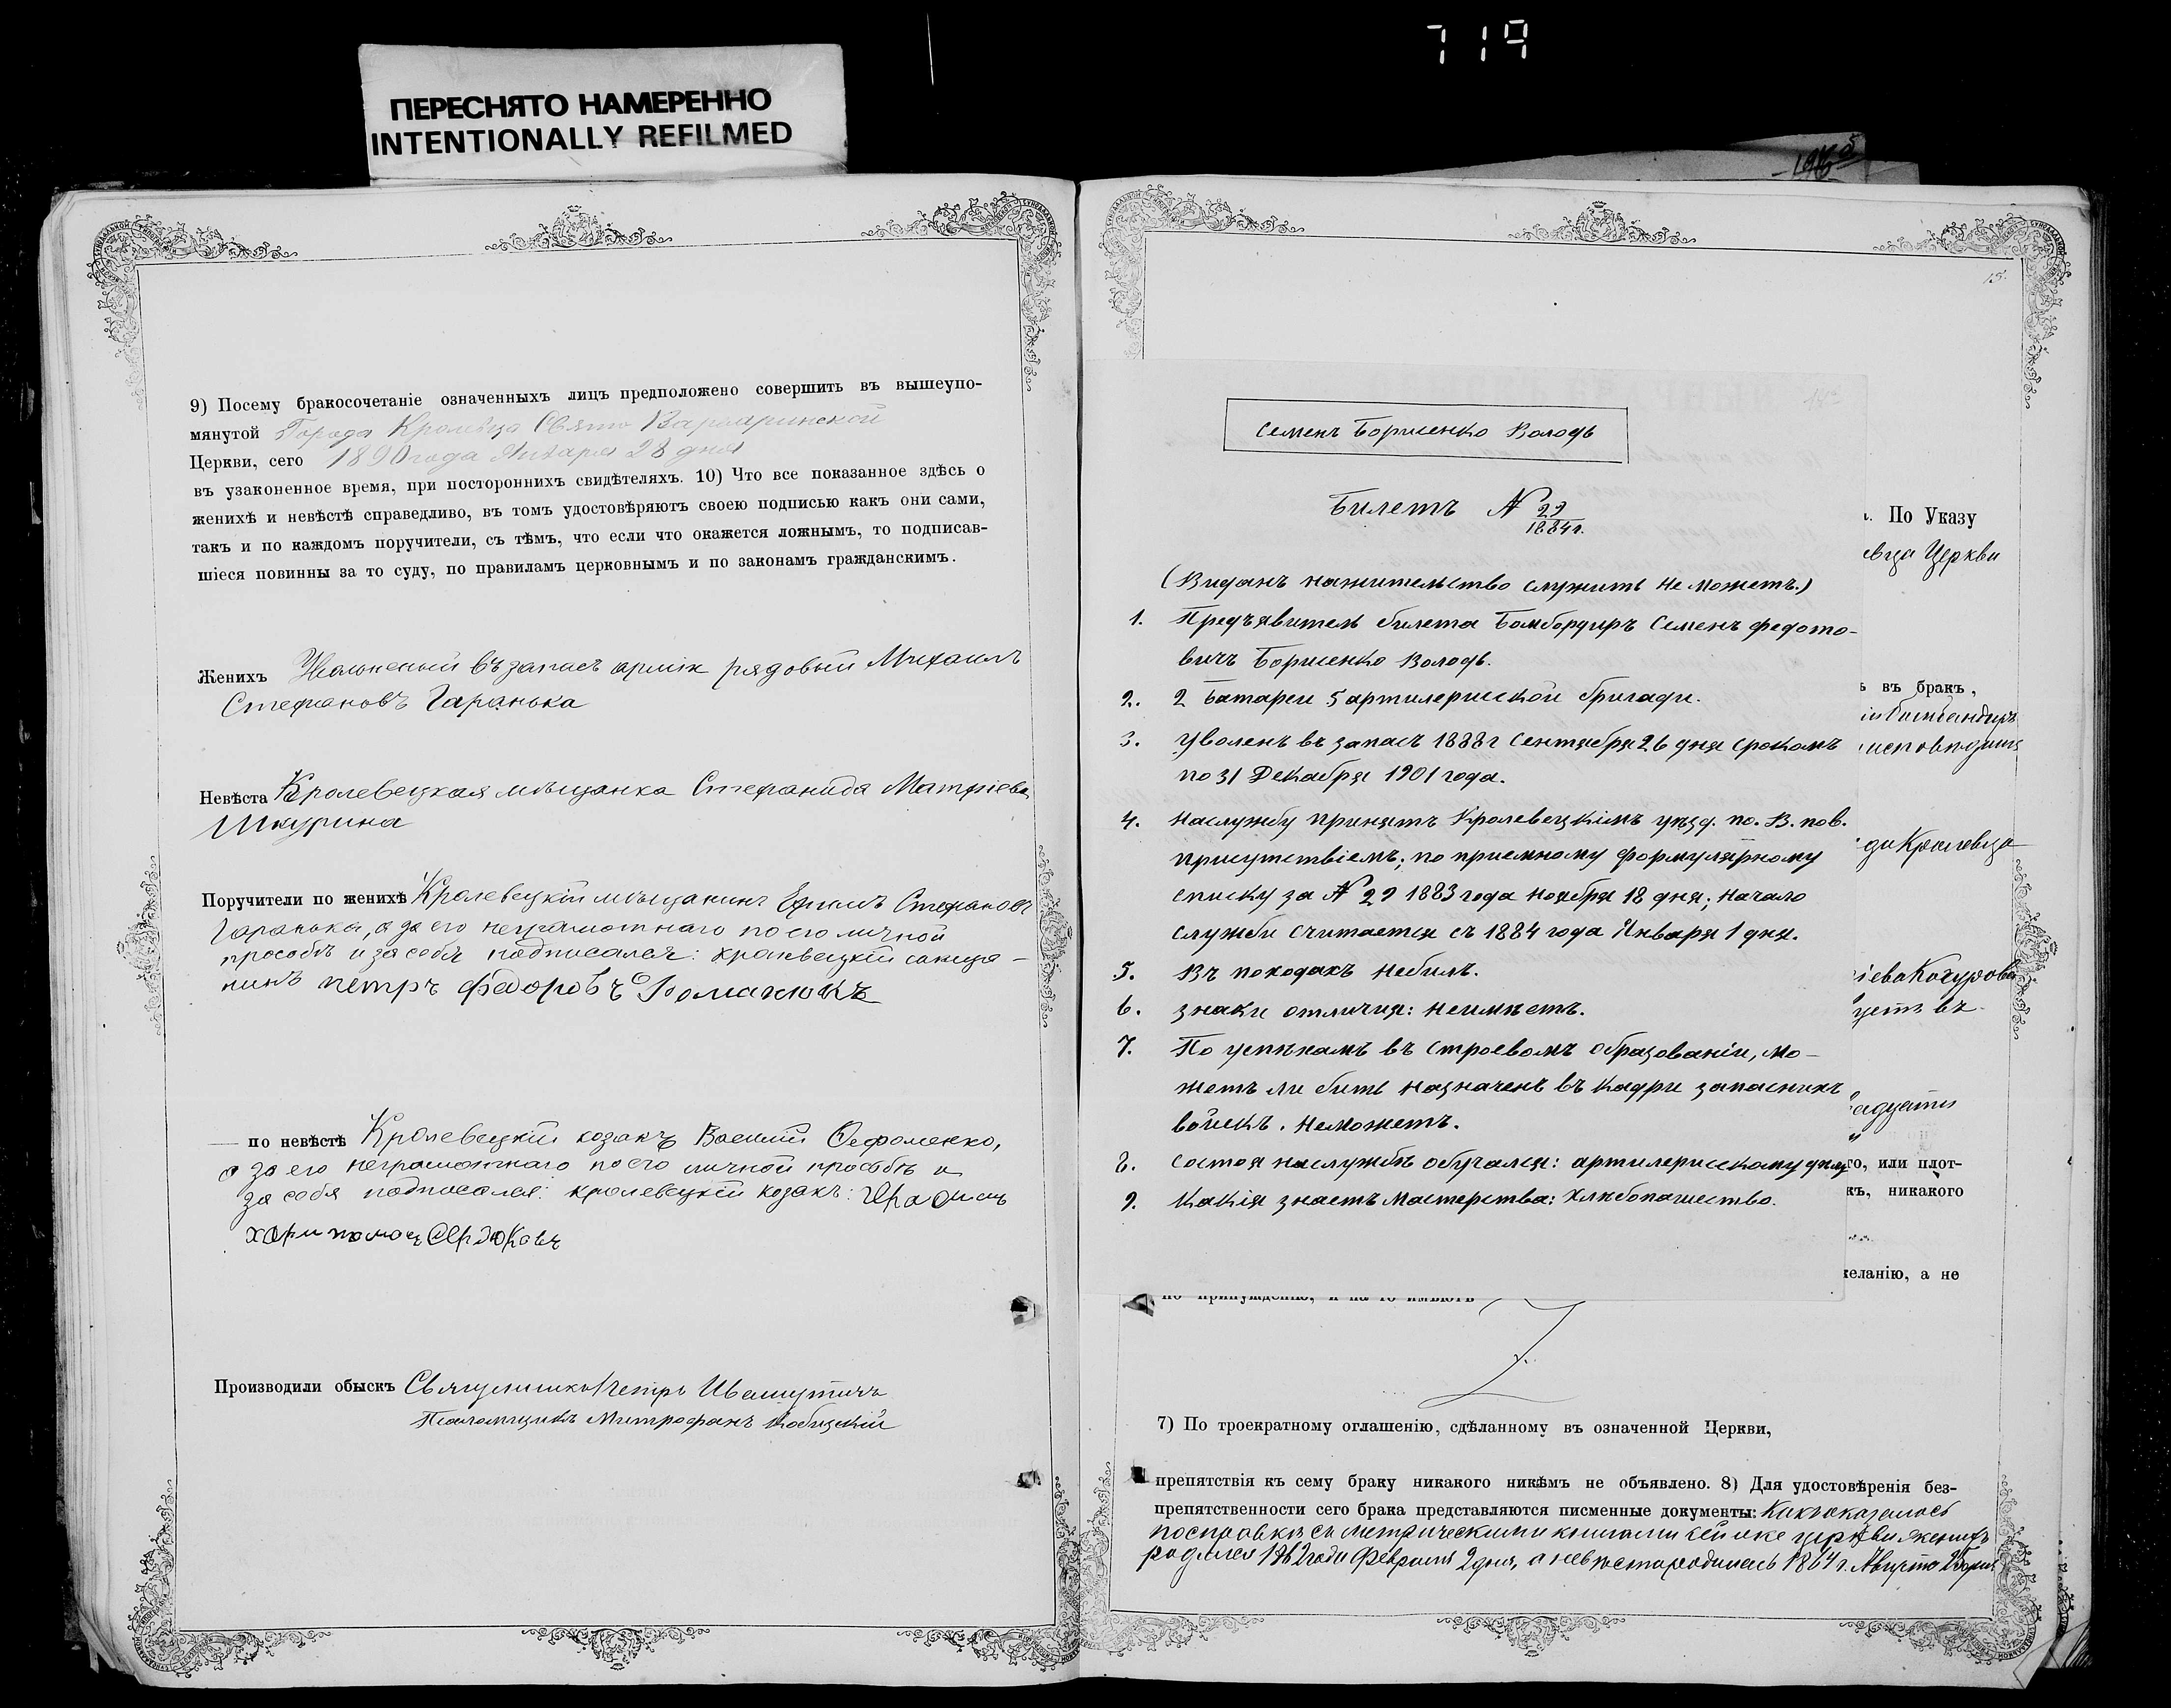 719
ПЕРЕСНЯТО НАМЕРЕННО
INTENTIONALLY REFILMED
9) Посему бракосочетаніе означенныхъ лицъ предположено совершить въ вышеупо-
мянутой Города Кролевца Свято Варваринской
Церкви, сего 1890 года Января 28 дня
въ узаконенное время, при постороннихъ свидѣтеляхъ. 10) Что все показанное здѣсь о
женихѣ и невѣстѣ справедливо, въ томъ удостовѣряютъ своею подписью какъ они сами,
такъ и по каждомъ поручители, съ тѣмъ, что если что окажется ложнымъ, то подписав-
шіеся повинны за то суду, по правиламъ церковнымъ и по законамъ гражданскимъ.
Женихъ Уволненый въ запасъ арміи рядовый Михаилъ
Стефановъ Гаранька
Невѣста Кролевецкая мѣщанка Стефанида Матфіева
Шкурина
Поручители по женихѣ Кролевецкій мѣщанинъ Ефимъ Стефановъ
Гаранька, а за его неграмотнаго по его личной
прозбѣ и за себя подписался:
петръ федоровъ Романюкъ
по невѣстѣ Кролевецкій козакъ Василій
а за его неграмотнаго по его личной прозбѣ и
за себя подписался: кролевецкій козакъ:
Сердюковъ
Производили обыскъ Священникъ Петръ Ивашутичъ
Псаломщикъ Митрофанъ
15.
Семенъ Борисенко Володь
Билетъ № 29
1884 г.
(Виданъ нажительство служить не можетъ.)
1. Предъявитель билета Бомбордиръ Семенъ федото-
вичъ Борисенко Володь.
2. 2 Батареи 5 артилерииской бригади.
3. Уволенъ въ запасъ 1888 г Сентября 26 дня срокомъ
по 31 Декабря 1901 года.
4. Наслужбу принятъ Кролевецкімъ уѣзд. по. В. пов.
присутствіемъ; по приемному формулярному
списку за № 29 1883 года ноября 18 дня; начало
служби считается съ 1884 года Января 1 дня.
5. Въ походахъ небилъ.
6. Знаки отличия: неимѣетъ.
7. По успѣхамъ въ строевомъ образованіи, мо-
жетъ ли бить назначенъ въ кадри запаснихъ
войскъ. Неможетъ.
8. Состоя наслужбѣ обучался: артилерисскому дѣлу
9. Какія знаетъ мастерства: хлѣбопашество.
. По Указу
евца Церкви
ь въ бракъ,
да Кролевца
іева Кочурова
уетъ въ
го, или плот-
къ, никакого
желанію, а не
по принужденію, и на то имѣютъ
7) По троекратному оглашенію, сдѣланному въ означенной Церкви,
препятствія къ сему браку никакого никѣмъ не объявлено. 8) Для удостовѣренія без-
препятственности сего брака представляются писменные документы: Какъ оказалось
по справкѣ съ метрическими книгами сей же церкви женихъ
родился 1862 года Февраля 2 дня, а невѣста родилась 1864 г. Августа